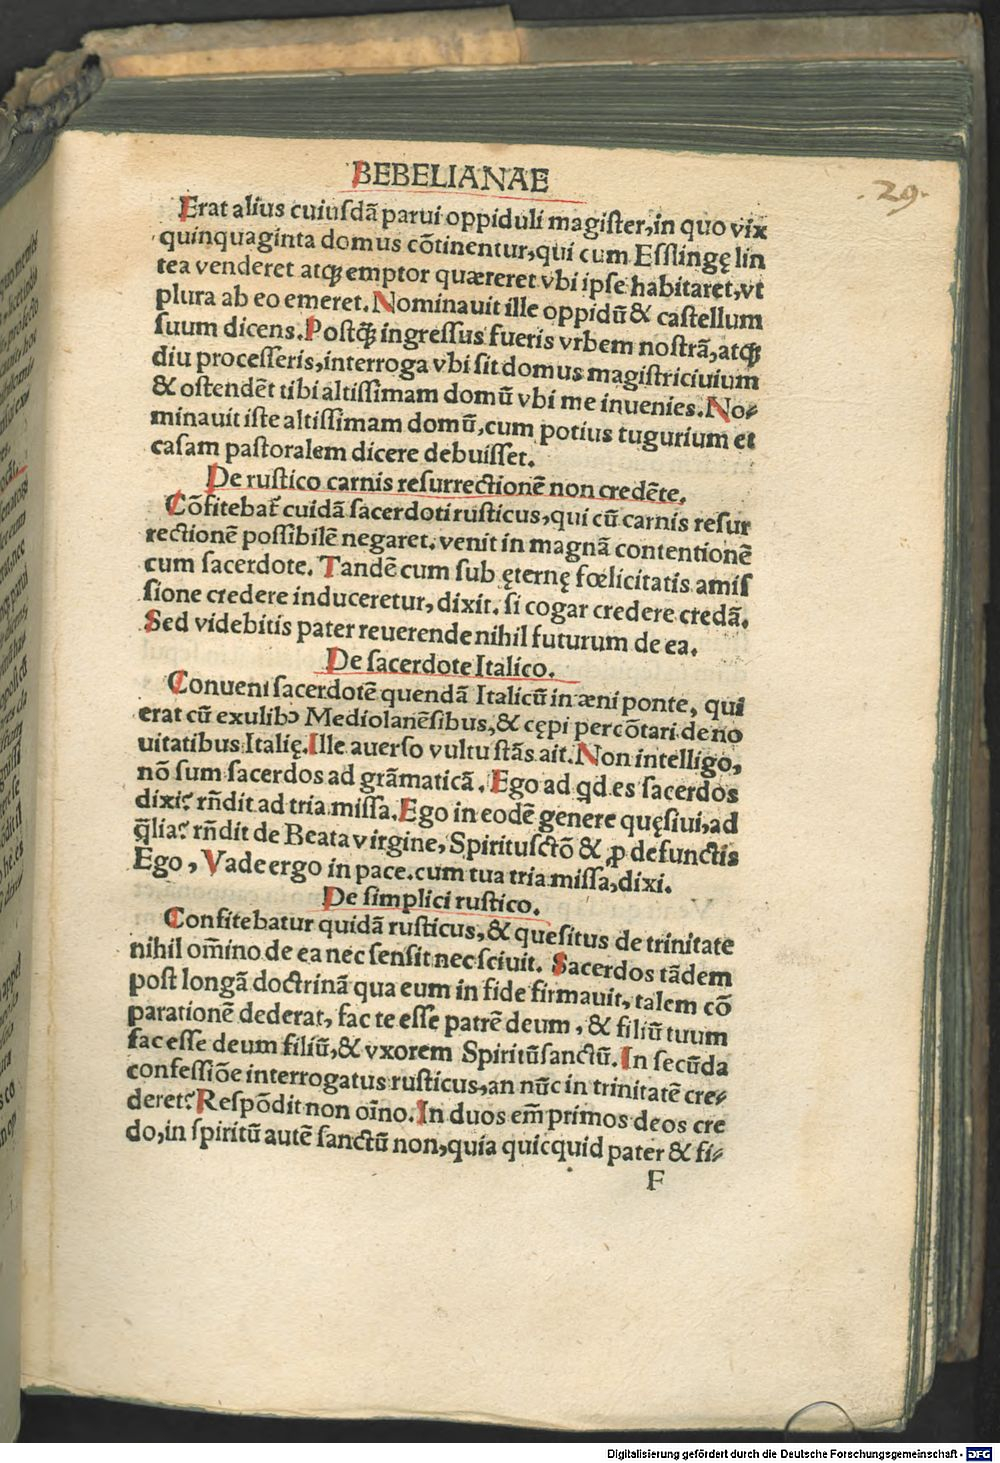 BEBELIANAE
29.
Erat alius cuiusdã parui oppiduli magister, in quo vix
quinquaginta domus cõtinentur, qui cum Esslingę lin
tea venderet atq; emptor quæreret vbi ipse habitaret, vt
plura ab eo emeret. Nominauit ille oppidũ & castellum
suum dicens. Postq̃ ingressus fueris vrbem nostrã, atq;
diu processeris, interroga vbi sit domus magistriciuium
& ostendẽt tibi altissimam domũ vbi me inuenies. No-
minauit iste altissimam domũ, cum potius tugurium et
casam pastoralem dicere debuisset.
De rustico carnis resurrectionẽ non credẽte.
Cõfitebat̃ cuidã sacerdoti rusticus, qui cũ carnis resur
rectionẽ possibilẽ negaret. venit in magnã contentionẽ
cum sacerdote. Tandẽ cum sub ęternę fœlicitatis amis
sione credere induceretur, dixit. si cogar credere credã.
Sed videbitis pater reuerende nihil futurum de ea.
De sacerdote Italico.
Conueni sacerdotẽ quendã Italicũ in æni ponte, qui
erat cũ exulibꝰ Mediolanẽsibus, & cępi percõtari de no
uitatibus Italię. Ille auerso vultu stãs ait. Non intelligo,
nõ sum sacerdos ad grãmaticã. Ego ad qd es sacerdos
dixi? rñdit ad tria missa. Ego in eodẽ genere quęsiui, ad
q̃lia? rñdit de Beata virgine, Spiritusctõ & ꝓ defunctis
Ego, Vade ergo in pace. cum tua tria missa, dixi.
De simplici rustico.
Confitebatur quidã rusticus, & quesitus de trinitate
nihil om̃ino de ea nec sensit nec sciuit. Sacerdos tãdem
post longã doctrinã qua eum in fide firmauit, talem cõ
parationẽ dederat, fac te esse patrẽ deum, & filiũ tuum
fac esse deum filiũ, & vxorem Spiritũsanctũ. In secũda
confessiõe interrogatus rusticus, an nũc in trinitatẽ cre-
deret? Respõdit non oĩno. In duos em̃ primos deos cre
do, in spiritũ autẽ sanctũ non, quia quicquid pater & fi-
F
Digitalisierung gefördert durch die Deutsche Forschungsgemeinschaft - DFG